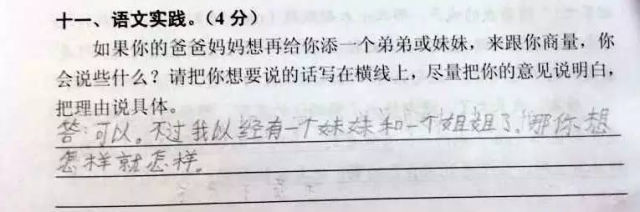 十一、语文实践。(4 分)
如果你的爸爸妈妈想再给你添一个弟弟或妹妹，来跟你商量，你
会说些什么？请把你想要说的话写在横线上，尽量把你的意见说明白，
把理由说具体。
答:可以。不过我以经有一个妹妹和一个姐姐了,哪你想
怎样就怎样。